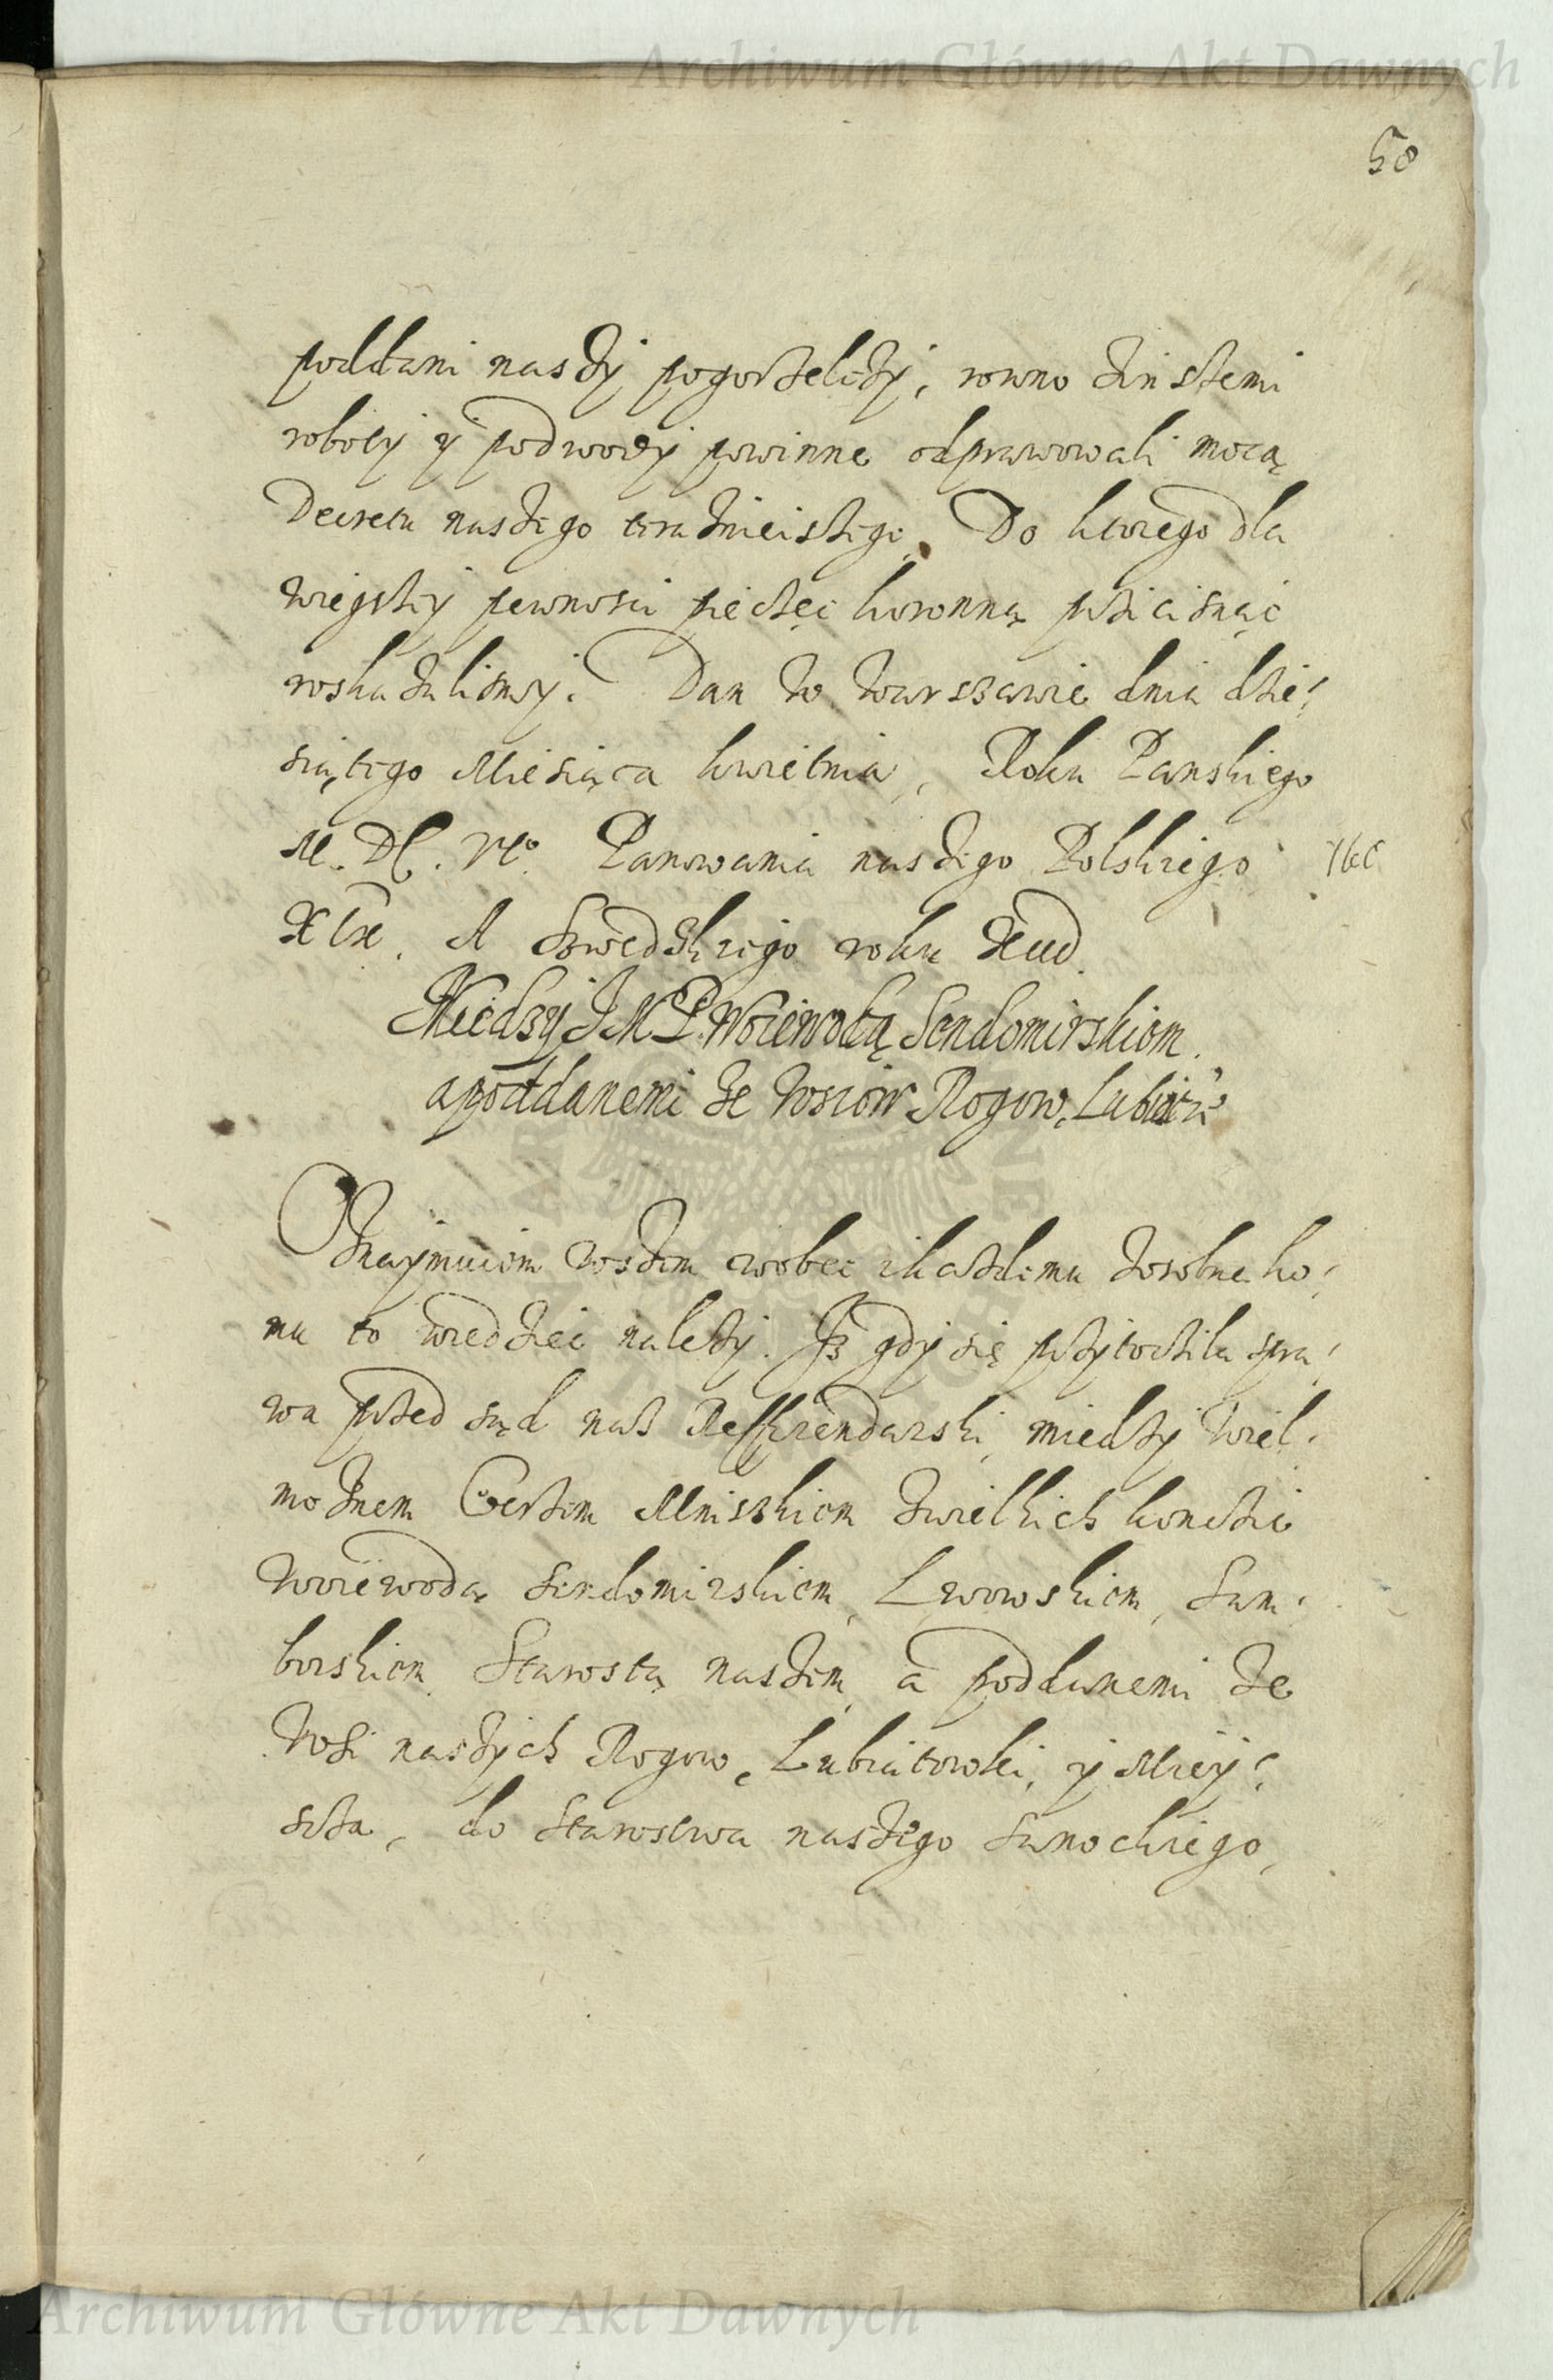 Archiwum Główne Akt Dawnych
50
poddani naszy pogorzelczy, rowno zinszemi
roboty y podwody powinne odprawowali mocą
Decretu naszego teraznieiszego. Do ktorego dla
więgszey pewnosci pieczęc koronną przicisnąc
roskazalismy. Dan w Warszawie dnia dzie:
siątego Miesiąca kwietnia, Roku Panskiego
Panowania naszego Polskiego
A Szwedzkiego roku
Miedzy J M P. Woiewodą Sendomirskiem
apoddanemi ze wsiow Rogow,
Oznaymuiem wszem wobec ikazdemu zosobna ko:
mu to wiedziec nalezy. Jz gdy się przytoczila spra:
wa przed sąd nasz Refferendarski, miedzy Wiel:
moznem Gerzim Mniszkiem zwielkich konczic
Woiewodą Sendomirskiem, Lwowskiem, Sam:
borskiem Starostą naszem, a poddanemi ze
Wsi naszych Rogow, Lubatowki, y Miey:
scza, do starostwa naszego Sanockiego,
Archiwum Główne Akt Dawnych